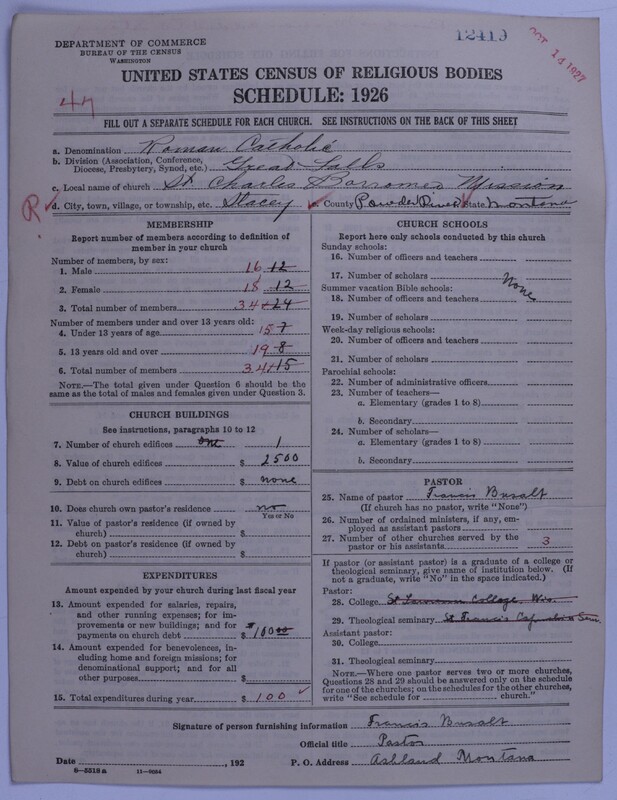 DEPARTMENT OF COMMERCE
BUREAU OF THE CENSUS
WASHINGTON
12419
OCT 14 1927
UNITED STATES CENSUS OF RELIGIOUS BODIES
SCHEDULE: 1926
47
FILL OUT A SEPARATE SCHEDULE FOR EACH CHURCH. SEE INSTRUCTIONS ON THE BACK OF THIS SHEET
a. Denomination Roman Catholic
b. Division (Association, Conference, Diocese, Presbytery, Synod, etc.) Great Falls
c. Local name of church St Charles Borromeo Mission
R d. City, town, village, or township, etc. Stacey County Powder River State Montana
MEMBERSHIP
Report number of members according to definition of member in your church
Number of members, by sex:
1. Male 16 12
2. Female 18 12
3. Total number of members 34 24
Number of members under and over 13 years old:
4. Under 13 years of age 15 7
5. 13 years old and over 19 8
6. Total number of members 34 15
NOTE.—The total given under Question 6 should be the same as the total of males and females given under Question 3.
CHURCH BUILDINGS
See instructions, paragraphs 10 to 12
7. Number of church edifices one 1
8. Value of church edifices $ 2500
9. Debt on church edifices $ none
10. Does church own pastor's residence no
Yes or No
11. Value of pastor's residence (if owned by church) $
12. Debt on pastor's residence (if owned by church) $
EXPENDITURES
Amount expended by your church during last fiscal year
13. Amount expended for salaries, repairs, and other running expenses; for improvements or new buildings; and for payments on church debt $ $100.00
14. Amount expended for benevolences, including home and foreign missions; for denominational support; and for all other purposes $
15. Total expenditures during year $ 100
CHURCH SCHOOLS
Report here only schools conducted by this church
Sunday schools:
16. Number of officers and teachers
17. Number of scholars
None
Summer vacation Bible schools:
18. Number of officers and teachers
19. Number of scholars
Week-day religious schools:
20. Number of officers and teachers
21. Number of scholars
Parochial schools:
22. Number of administrative officers
23. Number of teachers—
a. Elementary (grades 1 to 8)
b. Secondary
24. Number of scholars—
a. Elementary (grades 1 to 8)
b. Secondary
PASTOR
25. Name of pastor Francis Busalt
(If church has no pastor, write "None")
26. Number of ordained ministers, if any, employed as assistant pastors
27. Number of other churches served by the pastor or his assistants 3
If pastor (or assistant pastor) is a graduate of a college or theological seminary, give name of institution below. (If not a graduate, write "No" in the space indicated.)
Pastor:
28. College St Lawrence College, Wis.
29. Theological seminary St Francis Capuchin Sem.
Assistant pastor:
30. College
31. Theological seminary
NOTE.—Where one pastor serves two or more churches, Questions 28 and 29 should be answered only on the schedule for one of the churches; on the schedules for the other churches, write "See schedule for church."
Signature of person furnishing information Francis Busalt
Official title Pastor
Date , 192 P. O. Address Ashland Montana
8—5518a 11—9064